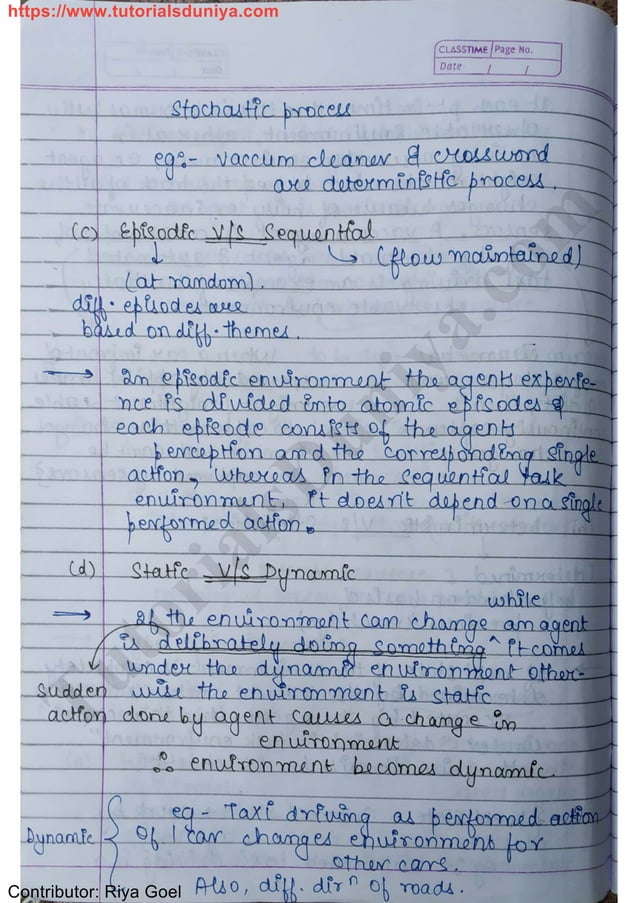 https://www.tutorialsduniya.com
CLASSTIME Page No.
Date / /
Stochastic process
eg:- vaccum cleaner & crossword
are deterministic process.
(c) Episodic V/S Sequential
(at random). (flow maintained)
diff. episodes are
based on diff. themes.
In episodic environment the agents experie-
nce is divided into atomic episodes &
each episode consists of the agents
perception and the corresponding single
action, whereas in the sequential task
environment, it doesn't depend on a single
performed action.
(d) Static V/S Dynamic
while
If the environment can change an agent
is delibrately doing something ^ it comes
under the dynamic environment other-
wise the environment is static
Sudden action done by agent causes a change in
environment
∴ environment becomes dynamic.
Dynamic { eg - Taxi driving as performed action
Of 1 car changes environment for
other cars.
Also, diff. dirⁿ of roads.
Contributor: Riya Goel
TutorialsDuniya.com